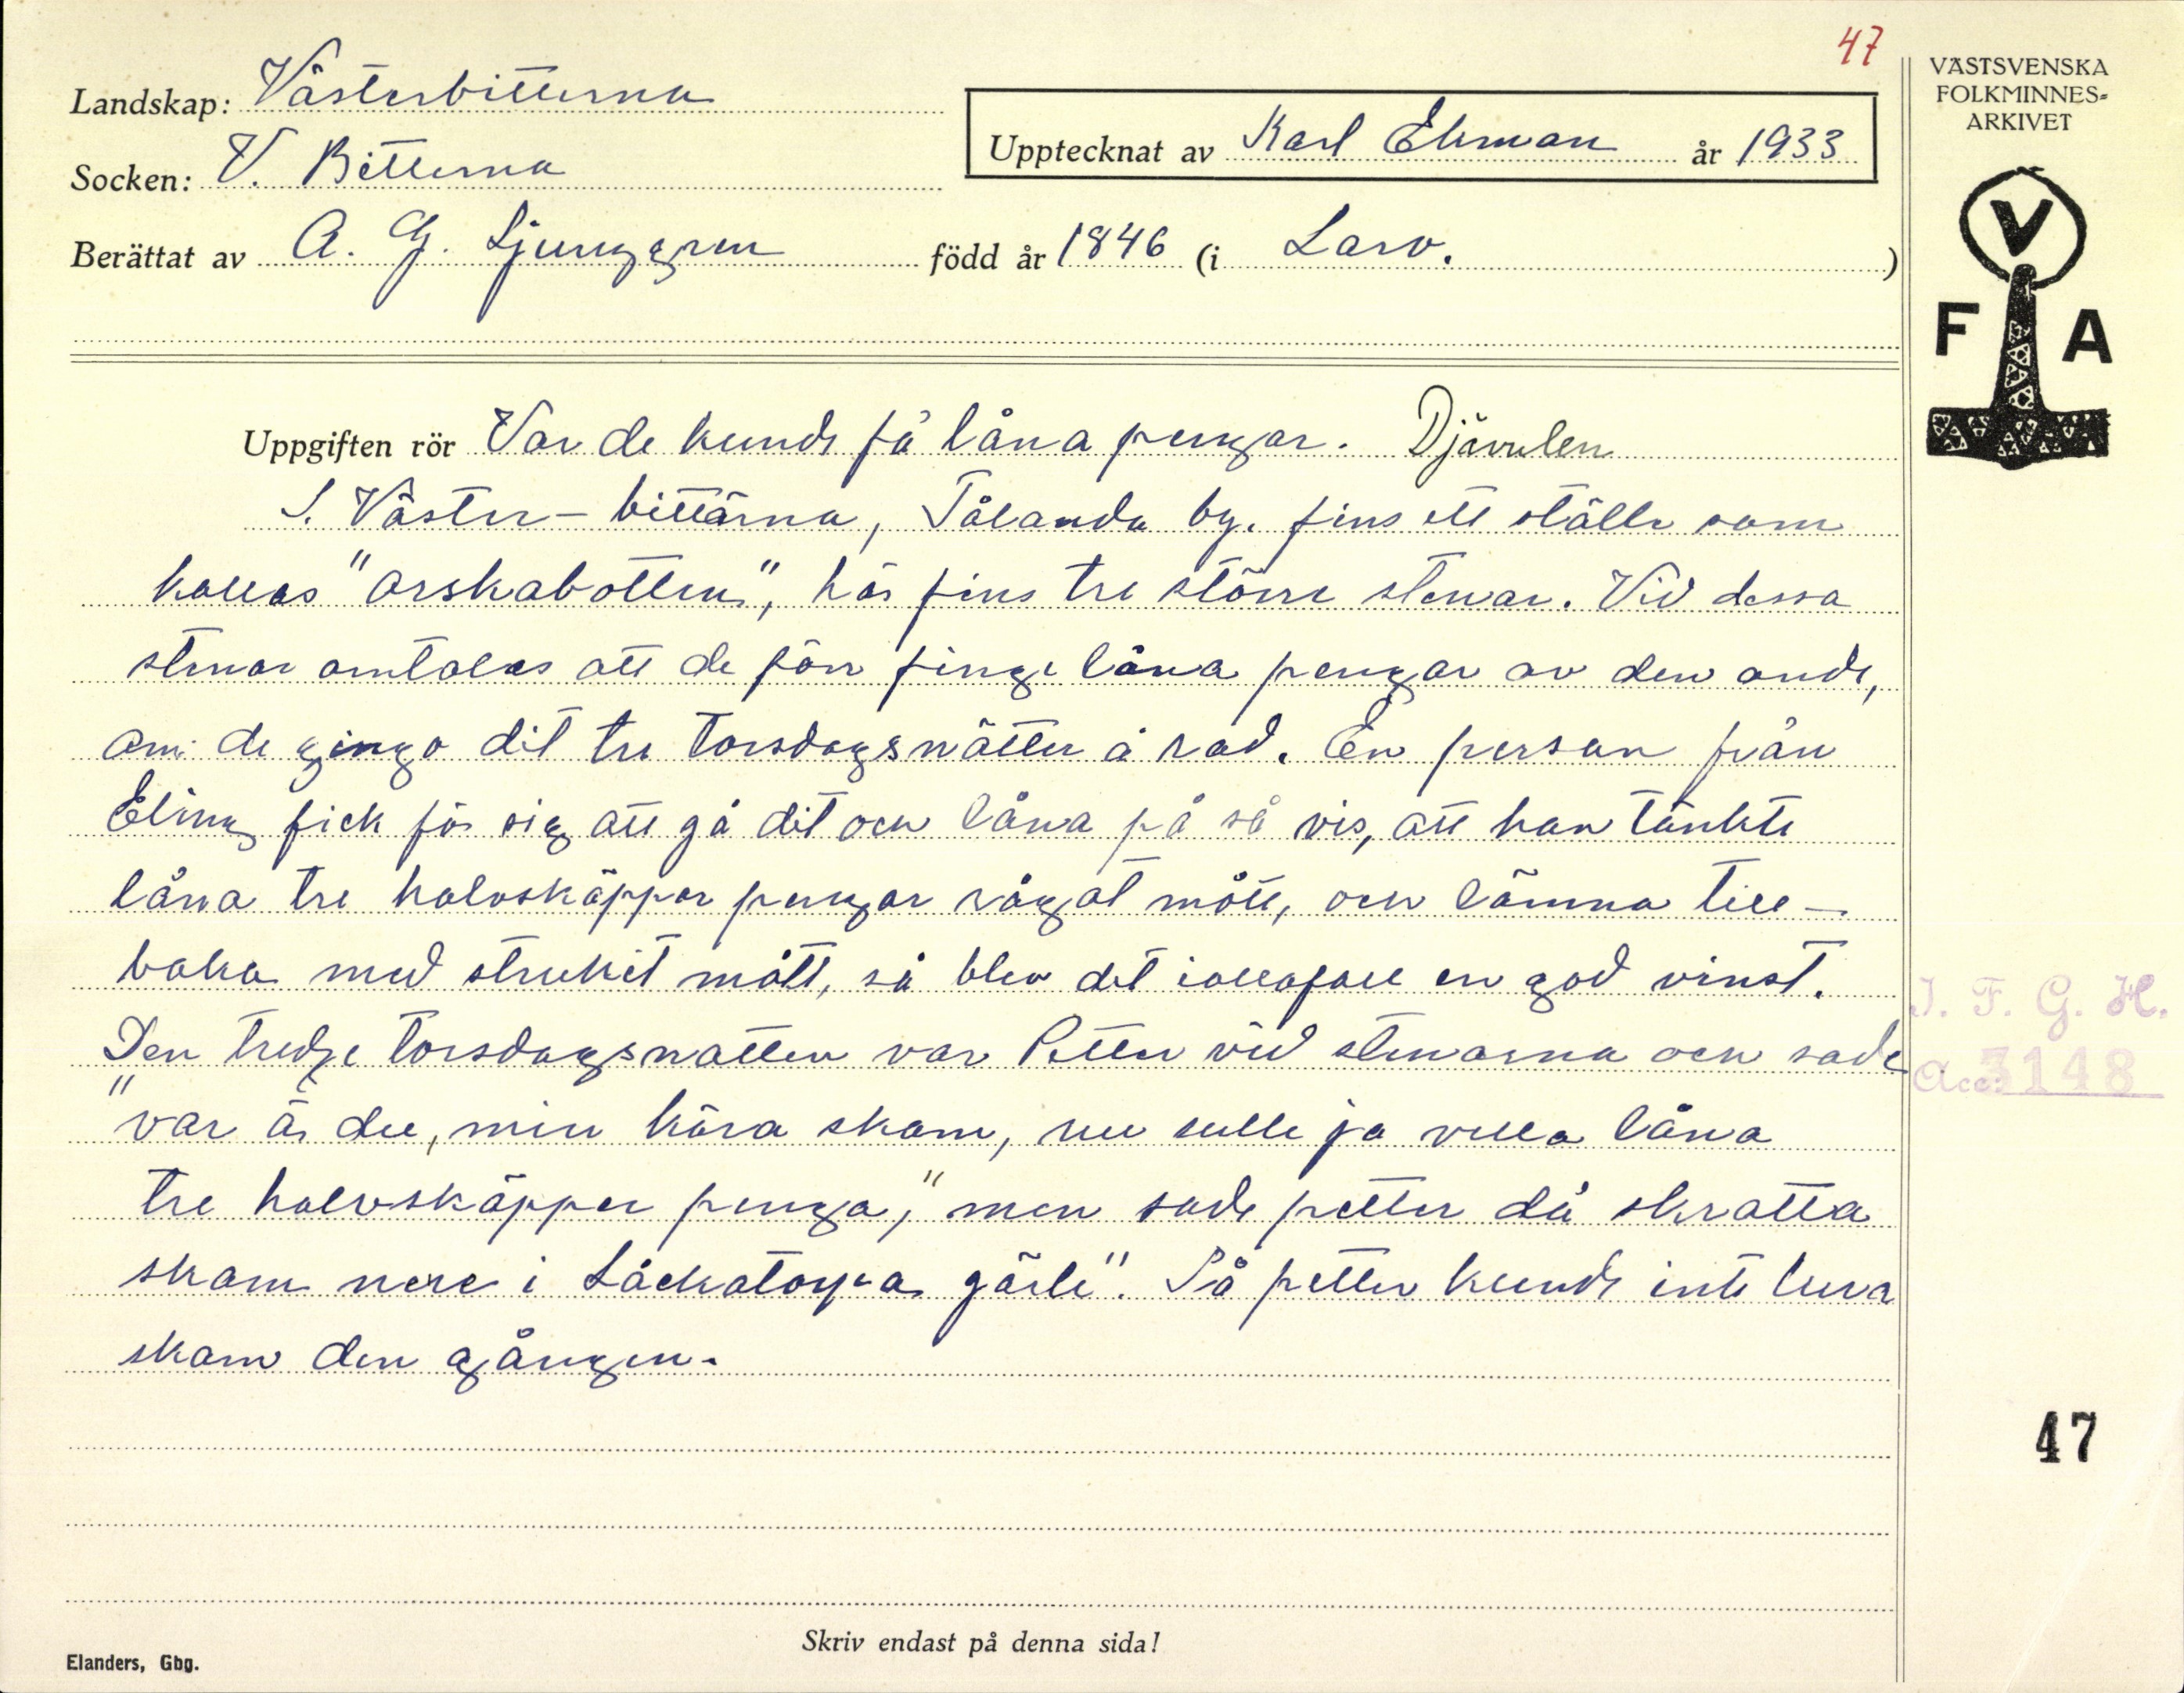 47
VÄSTSVENSKA
FOLKMINNES-
ARKIVET
Landskap: Västerbitterna
Upptecknat av Karl Ekman år 1933
Socken: V. Bitterna
Berättat av A. G. Ljunggren född år 1846 (i Larv.)
V
F A
Uppgiften rör Var de kunde få låna pengar. Djävulen
I. Väster-bittärna, Tålanda by. fins ett ställe som
kallas "arskabotten", här fins tre större stenar. Vid dessa
stenar omtalas att de förr finge låna pengar av den onde,
om de gingo dit tre torsdagsnätter å rad. En person från
Eling fick för sig att gå dit ock låna på så vis, att han tänkte
låna tre halvskäppor pengar rågat mått, ock lämna till-
baka med struket mått, så blev det iallafall en god vinst.
Den tredje torsdagsnatten var Petter vid stenarna ock sade
"var är du, min kära skam, nu sulle ja vella låna
tre halvskäpper penga," men sade petter då skratta
skam nere i Låckatorpa gärle". Så petter kunde inte lura
skam den gången.
I. F. G. H.
Acc: 3148
47
Skriv endast på denna sida!
Elanders, Gbg.